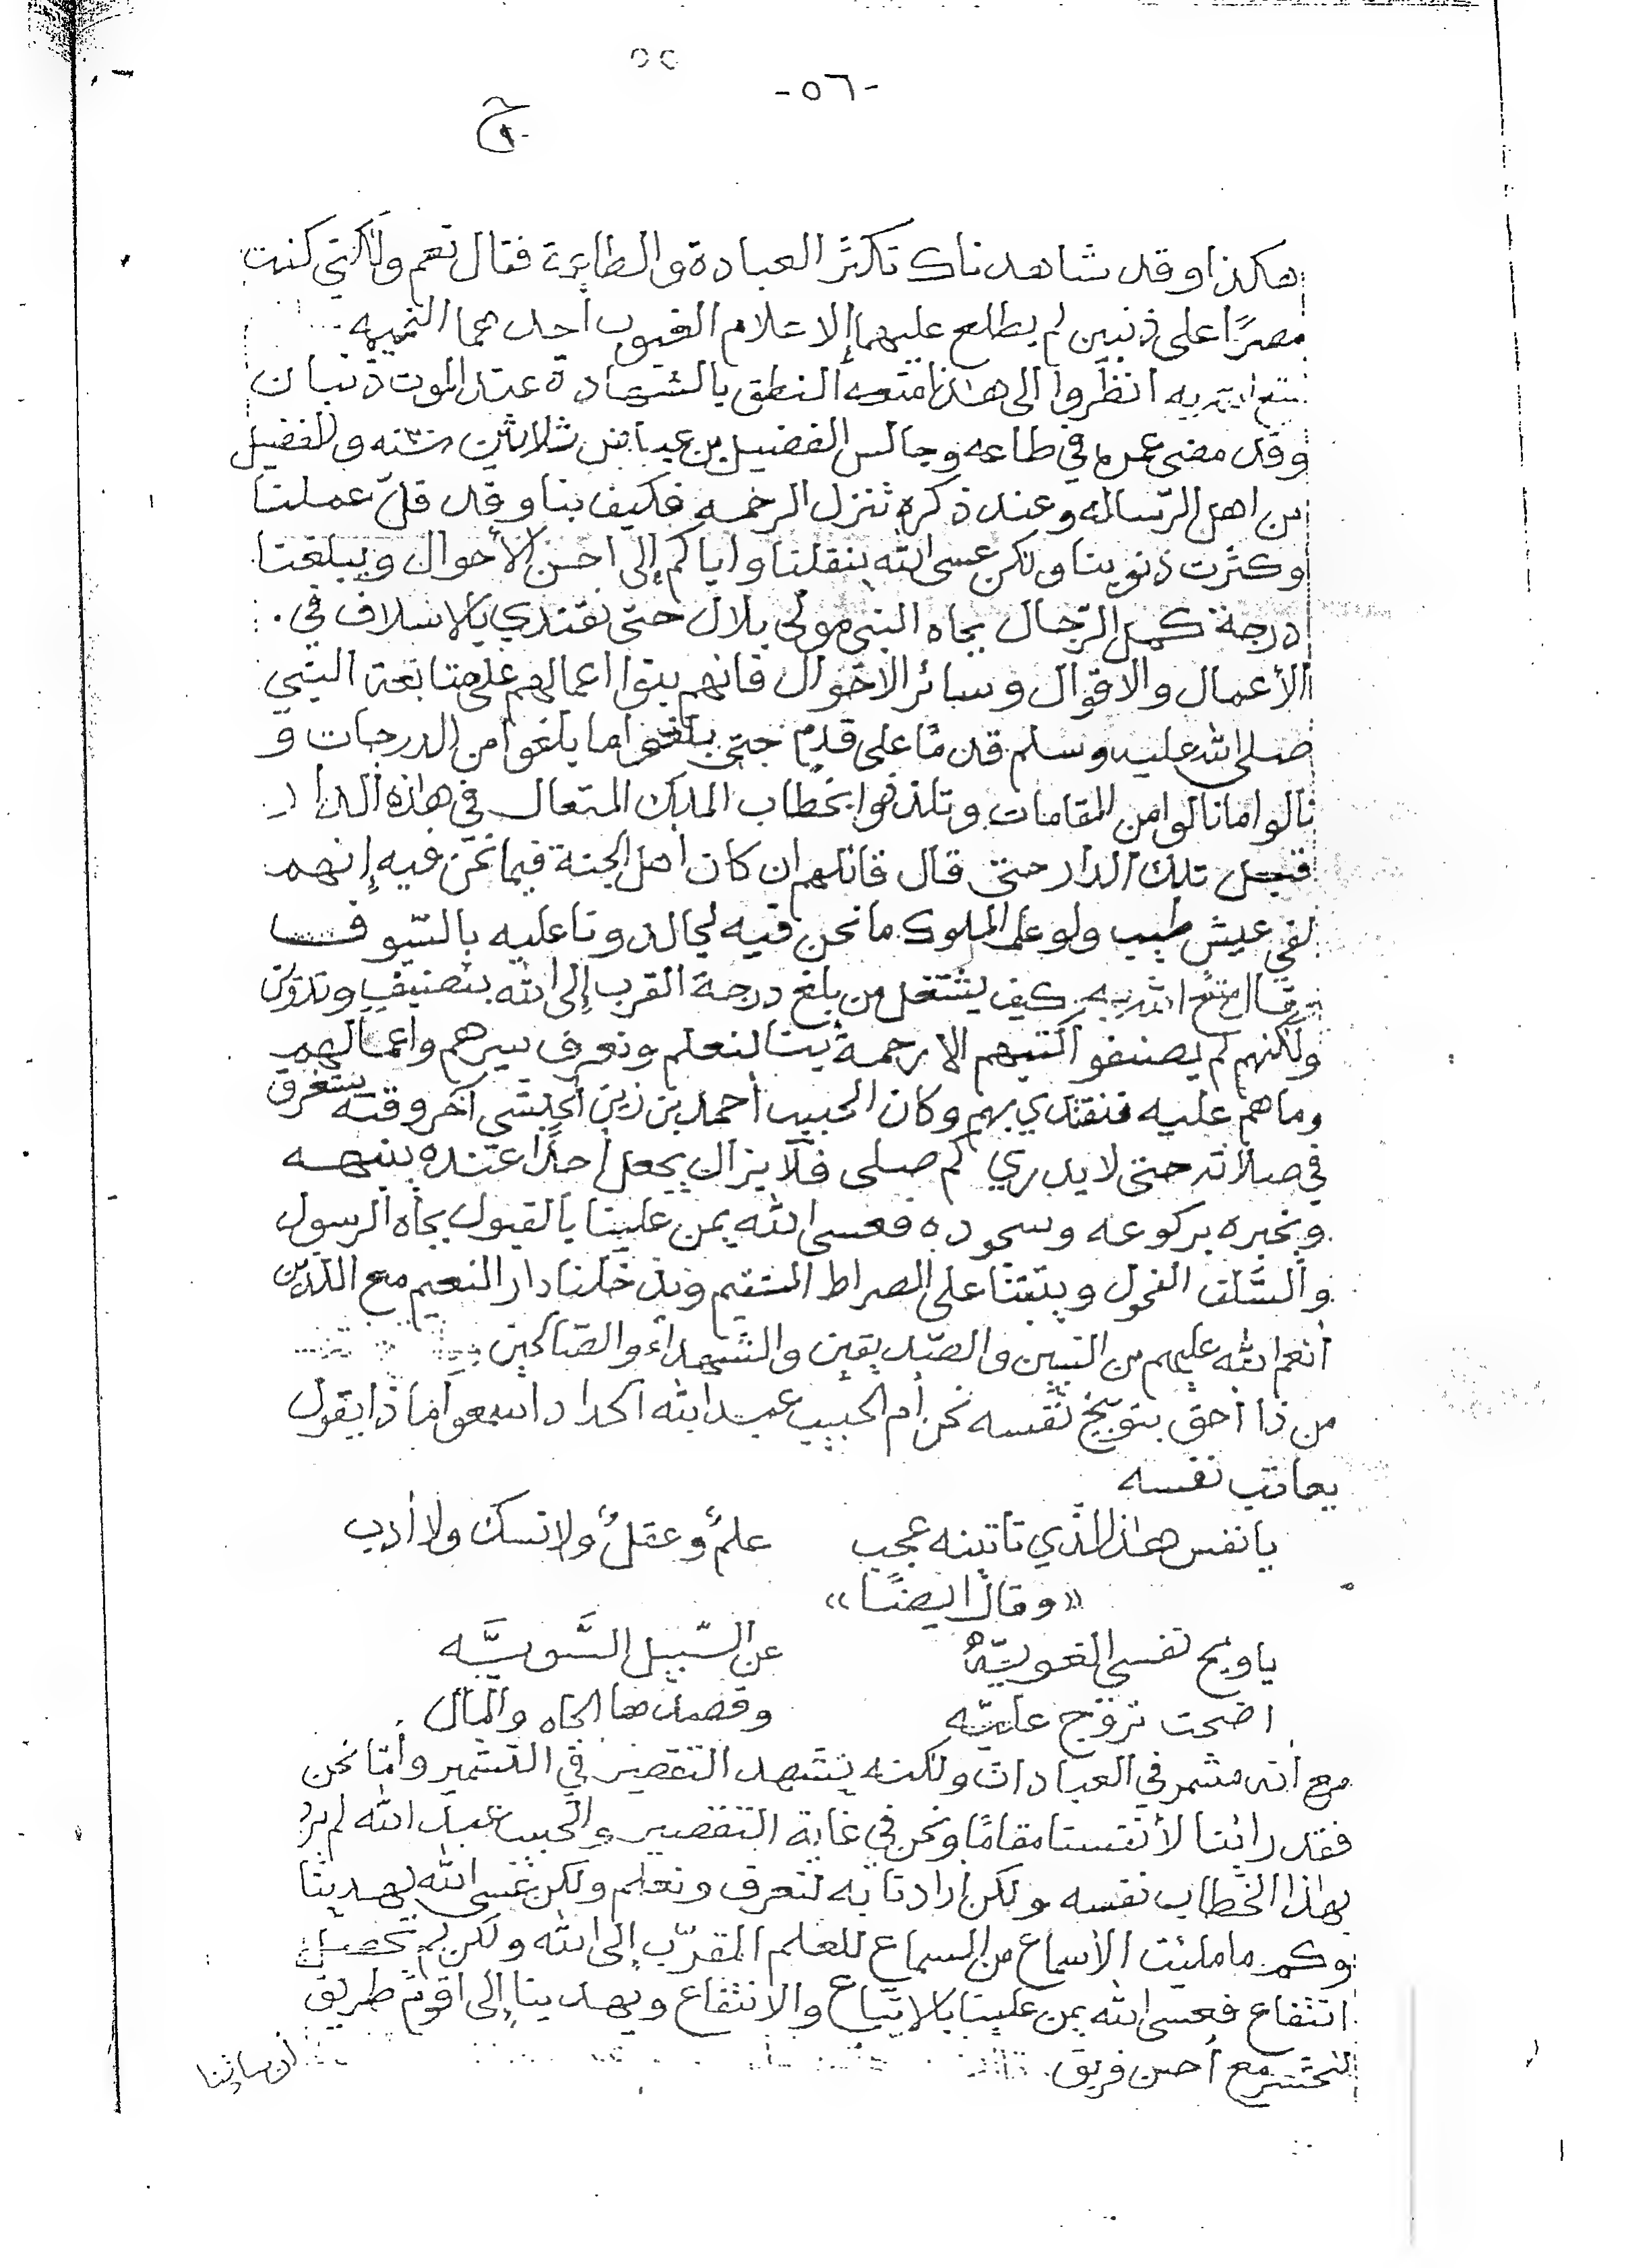 ٥٢
-٥٦-
هكذا وقد شاهدناك تكثر العبادة والطاعة فقال نعم ولكني كنت
مصرًا على ذنبين لم يطلع عليهما إلا علام الغيوب أحدهما النميمه
متع الله به انظروا إلى هذا منعه النطق بالشهادة عند الموت ذنبان
وقد مضى عمره في طاعه وجالس الفضيل بن عياض ثلاثين سنه والفضيل
من اهل الرساله وعند ذكره تنزل الرحمه فكيف بنا وقد قلّ عملنا
وكثرت ذنوبنا ولكن عسى الله ينقلنا واياكم إلى احسن الأحوال ويبلغنا
درجة كمل الرّجال بجاه النبي مولى بلال حتى نقتدي بالاسلاف في
الأعمال والاقوال وسائر الاحوال فانهم بنوا اعمالهم على متابعة النبي
صلى الله عليه وسلم قدمًا على قدم حتى بلغوا ما بلغوا من الدرجات و
نالوا ما نالوا من المقامات وتلذذوا بخطاب الملك المتعال في هاذه الدار
قبل تلك الدار حتى قال قائلهم ان كان اهل الجنة فيما نحن فيه إنهم
لفي عيش طيب ولو علم الملوك ما نحن فيه لجالدونا عليه بالسّيوف
قال متع الله به كيف يشتغل من بلغ درجة القرب إلى الله بتصنيف وتدوين
ولكنهم لم يصنفوا كتبهم الا رحمة بنا لنعلم ونعرف سيرهم واعمالهم
وما هم عليه فنقتدي بهم وكان الحبيب أحمد بن زين الحبشي آخر وقته يستغرق
في صلاته حتى لا يدري كم صلى فلا يزال يجعل أحدًا عنده ينبهه
ويخبره بركوعه وسجوده فعسى الله يمن علينا بالقبول بجاه الرسول
والسّلف الفحول ويثبتنا على الصراط المستقيم ويدخلنا دار النعيم مع الذين
أنعم الله عليهم من النبيين والصدّيقين والشهداء والصّالحين
من ذا أحق بتوبيخ نفسه نحن أم الحبيب عبد الله الحداد اسمعوا ماذا يقول
يعاتب نفسه
يا نفس هذا الذي تاتينه عجب علمٌ وعقلٌ ولا نسك ولا أدب
«وقال ايضًا»
يا ويح نفسي الغويّهْ عن السّبيل السَّويَّه
اضحت تروّج عليّه وقصدها الجاه والمال
مع أنه مشمر في العبادات ولكنه يشهد التقصير في التشمير وأمّا نحن
فقد رائنا لأنفسنا مقامًا ونحن في غاية التقصير والحبيب عبد الله لم يرد
بهاذا الخطاب نفسه ولكن ارادنا به لنعرف ونعلم ولكن عسى الله يهدينا
وكم ما ملئت الأسماع من السماع للعلم المقرّب إلى الله ولكن لم تحصل
انتفاع فعسى الله يمن علينا بالاتّباع والانتفاع ويهدينا إلى اقوم طريق
لنحشر مع أحسن فريق